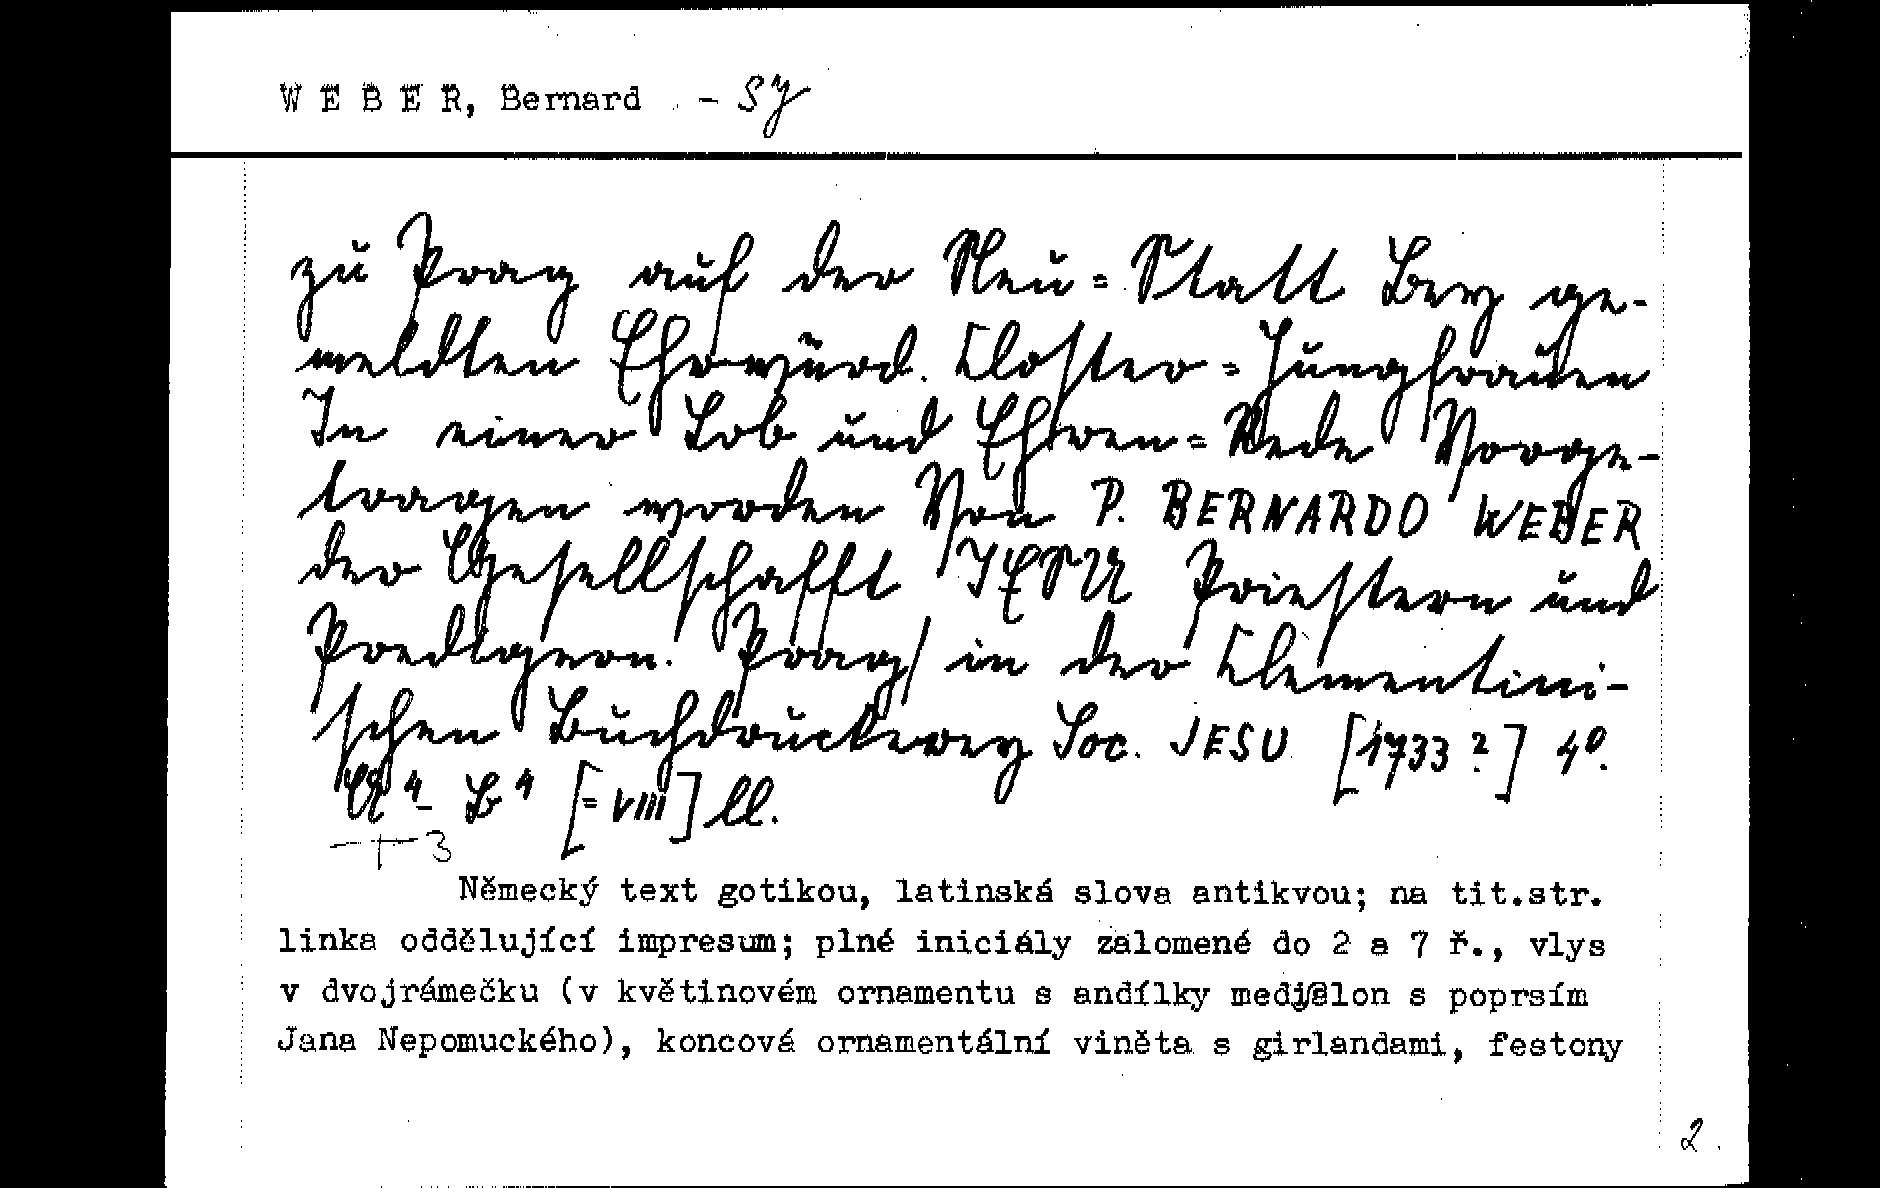 W E B E R, Bernard - SJ
zu Prag auf der Neu=Statt Bey ge-
meldten Ehrwürd. Closter=Jungfrauen
In einer Lob und Ehren=Rede Vorge-
tragen worden Von P. BERNARDO WEBER
der Gesellschafft JESU Priestern und
Predigern. Prag/ in der Clementini-
schen Buchdruckerey Soc. JESU [1733?] 4º.
A⁴- B⁴ [= VIII] ll.
Německý text gotikou, latinská slova antikvou; na tit.str.
linka oddělující impresum; plné iniciály zalomené do 2 a 7 ř., vlys
v dvojrámečku (v květinovém ornamentu s andílky medjalon s poprsím
Jana Nepomuckého), koncová ornamentální viněta s girlandami, festony
2.